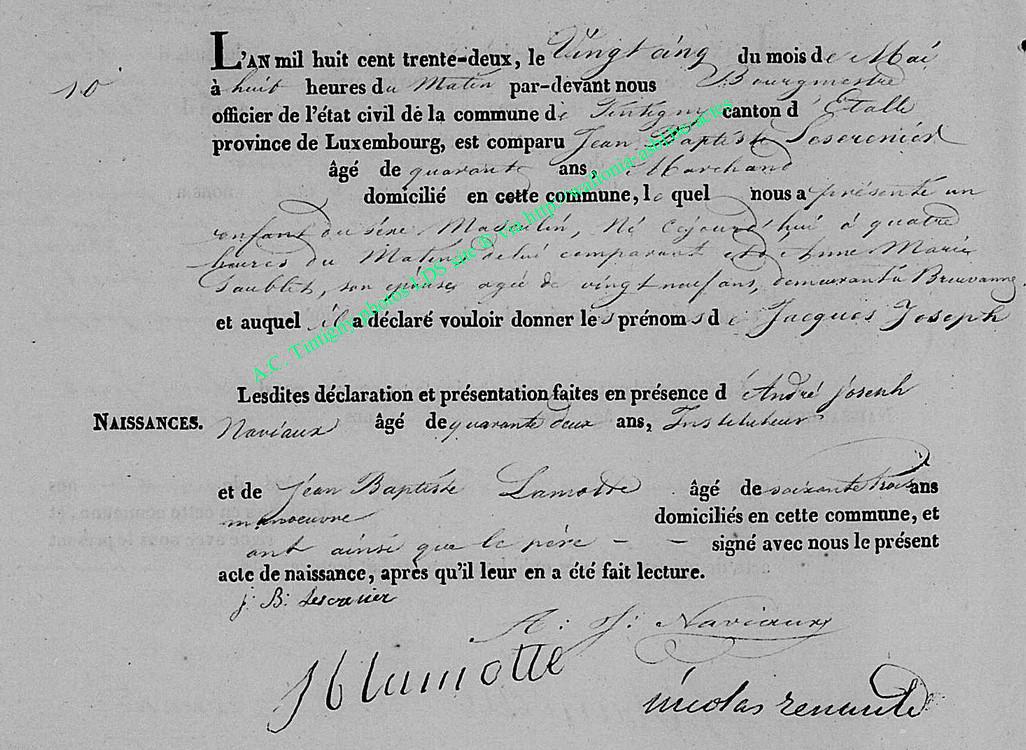 10
L'AN mil huit cent trente-deux, le Vingt cinq du mois de Mai
à huit heures du Matin par-devant nous Bourgmestre
officier de l'état civil de la commune de Tintigny canton d'Etalle
province de Luxembourg, est comparu Jean Baptiste
âgé de quarante ans, Marchand
domicilié en cette commune, le quel nous a présenté un
enfant du séxe Masculin, Né cejourd'hui à quatre
heures du Matin, de lui comparant et d'Anne Marie
son épouse agée de vingt neuf ans, demeurant à Breuvanne,
et auquel il a déclaré vouloir donner les prénoms de Jacques Joseph
Lesdites déclaration et présentation faites en présence d'André joseph
NAISSANCES. Naviaux âgé de quarante deux ans, Instituteur
et de Jean Baptiste Lamotte âgé de soixante trois ans
manoeuvre domiciliés en cette commune, et
ont ainsi que le père - - signé avec nous le présent
acte de naissance, après qu'il leur en a été fait lecture.
j: B: Lescrenier
A: J: Naviaux
J b lamotte
nicolas
A.C. Tintigny photos LDS site © via http://wallonia-asbl.be/actes